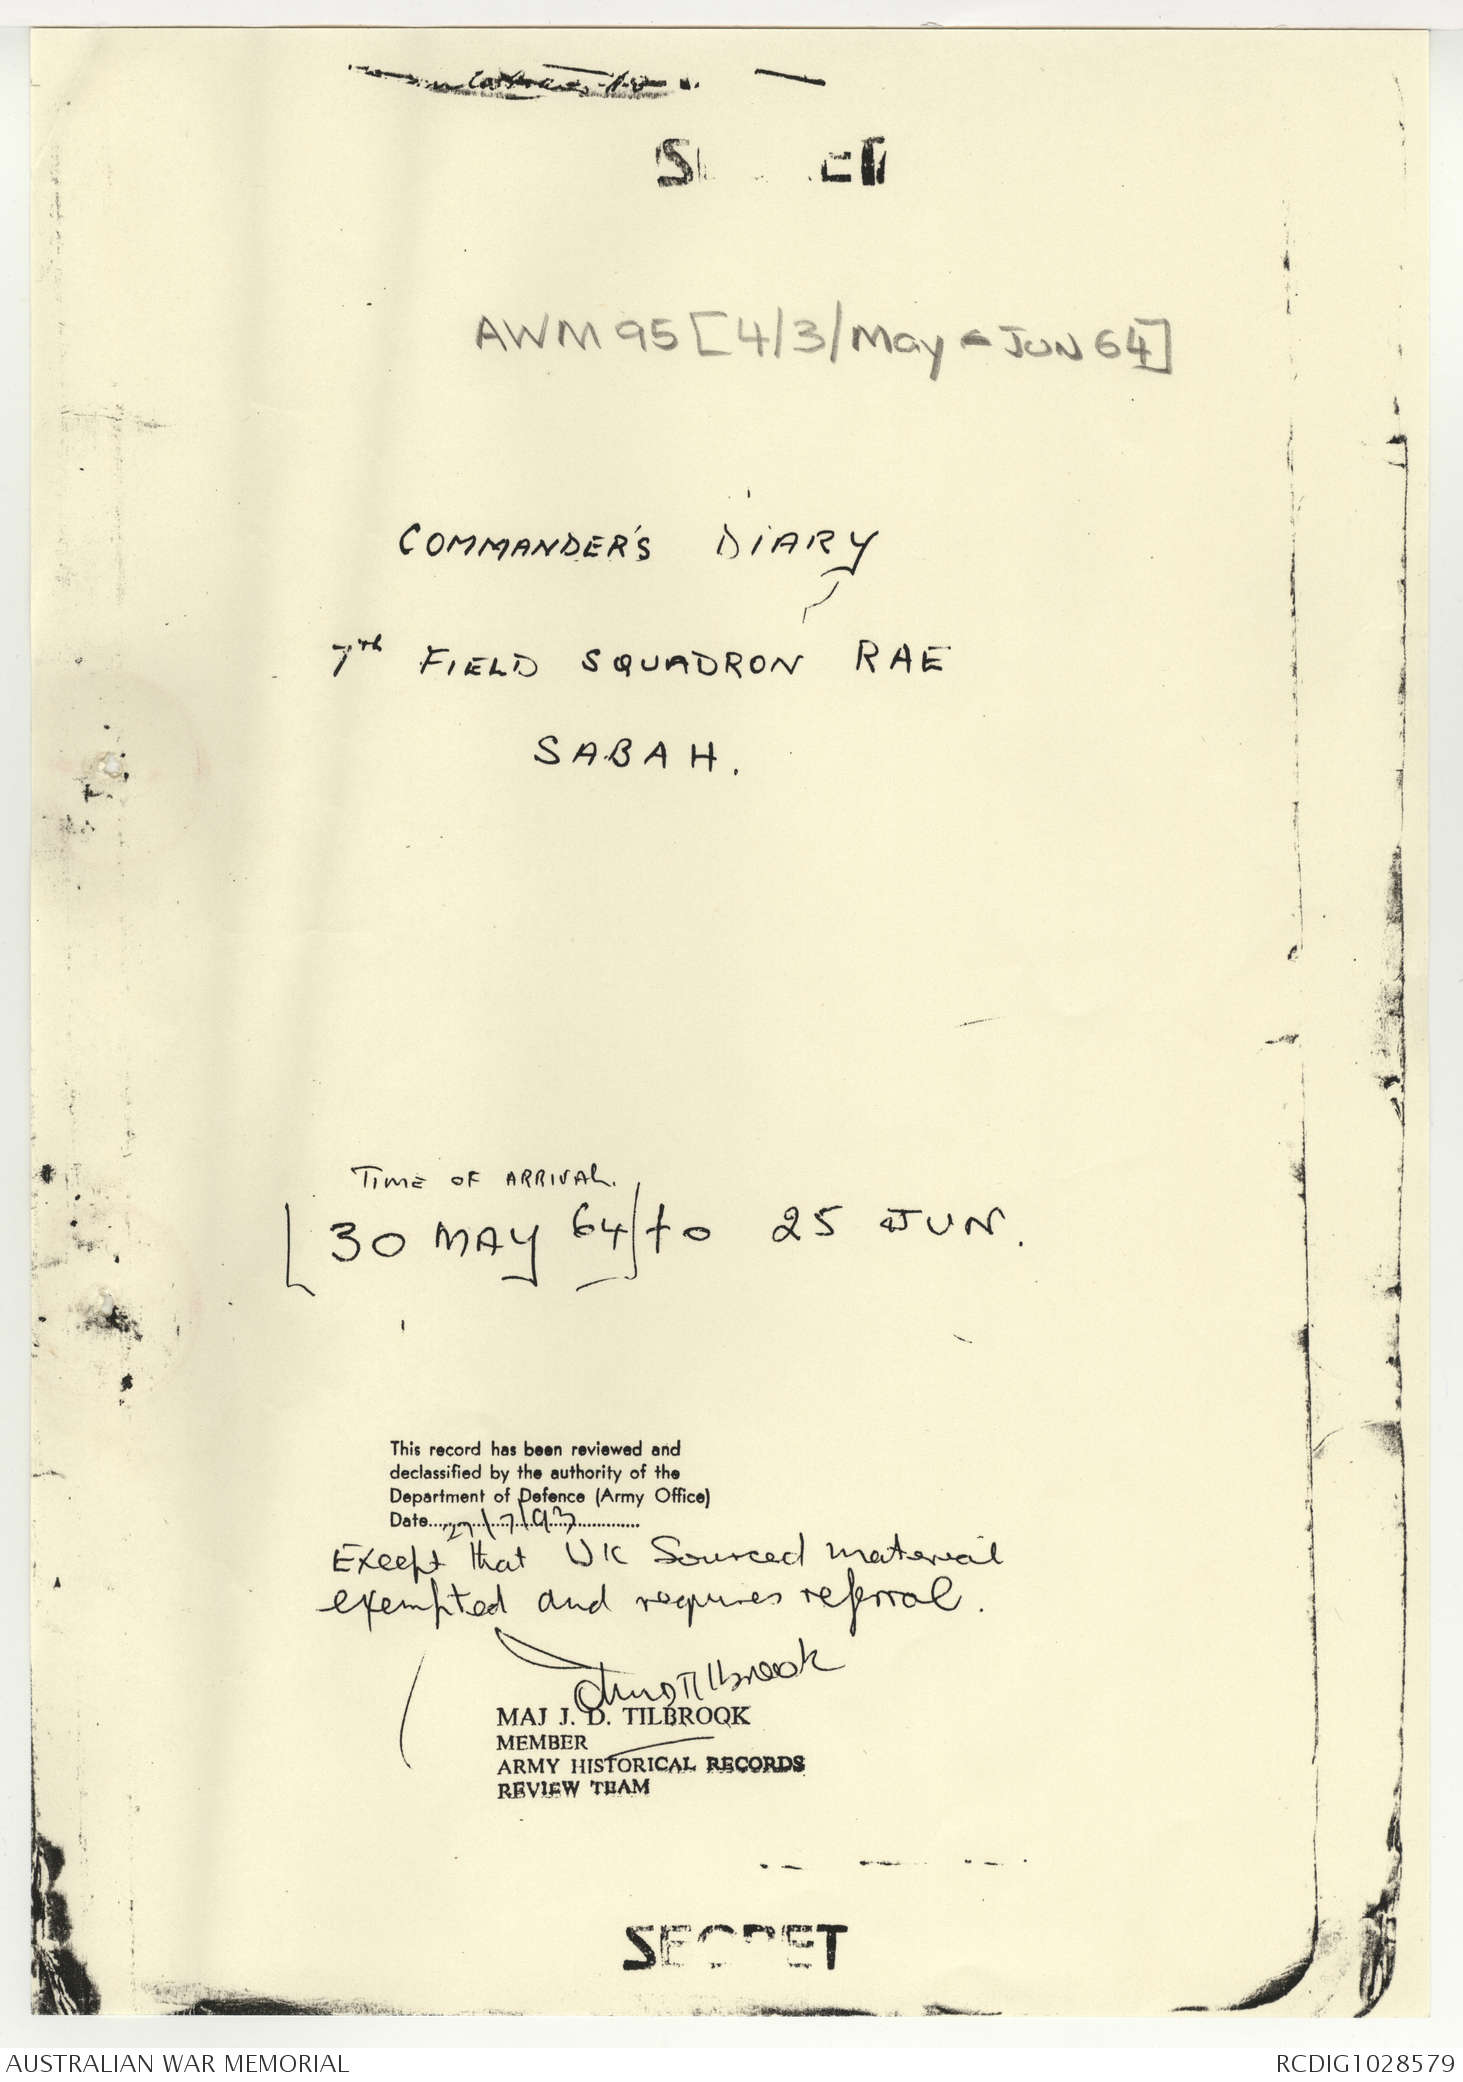 SECRET
AWM 95 [4/3/May - JUN 64]
COMMANDER'S DIARY
7th FIELD SQUADRON RAE
SABAH.
TIME OF ARRIVAL.
[30 MAY 64] to 25 JUN.
This record has been reviewed and
declassified by the authority of the
Department of Defence (Army Office)
Date 27/7/93
Except that UK Sourced material
exempted and requires referral.
MAJ J. D. TILBROOK
MEMBER
ARMY HISTORICAL RECORDS
REVIEW TEAM
SECRET
AUSTRALIAN WAR MEMORIAL
RCDIG1028579